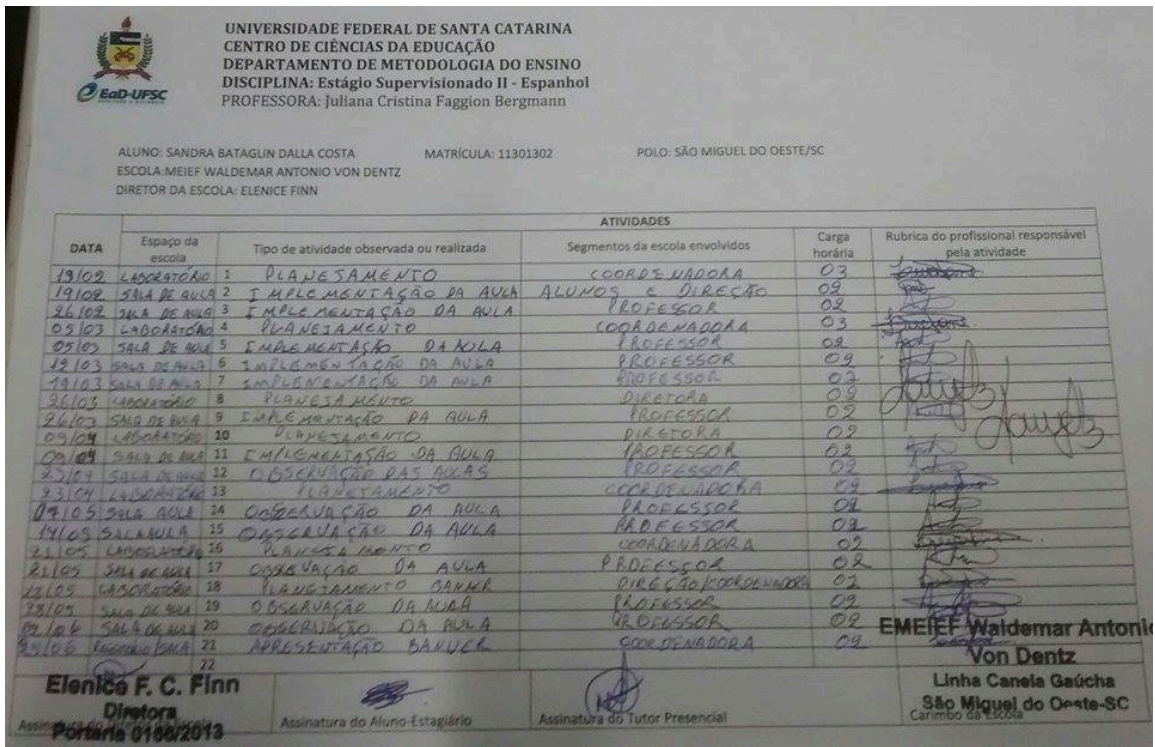 UNIVERSIDADE FEDERAL DE SANTA CATARINA
CENTRO DE CIÊNCIAS DA EDUCAÇÃO
DEPARTAMENTO DE METODOLOGIA DO ENSINO
DISCIPLINA: Estágio Supervisionado II - Espanhol
PROFESSORA: Juliana Cristina Faggion Bergmann
EaD-UFSC
ALUNO: SANDRA BATAGLIN DALLA COSTA MATRÍCULA: 11301302 POLO: SÃO MIGUEL DO OESTE/SC
ESCOLA:MEIEF WALDEMAR ANTONIO VON DENTZ
DIRETOR DA ESCOLA: ELENICE FINN
ATIVIDADES
DATA Espaço da escola Tipo de atividade observada ou realizada Segmentos da escola envolvidos Carga horária Rubrica do profissional responsável pela atividade
19/02 LABORATÓRIO 1 PLANEJAMENTO COORDENADORA 03
19/02 SALA DE AULA 2 IMPLEMENTAÇÃO DA AULA ALUNOS E DIREÇÃO 02
26/02 SALA DE AULA 3 IMPLEMENTAÇÃO DA AULA PROFESSOR 02
05/03 LABORATÓRIO 4 PLANEJAMENTO COORDENADORA 03
05/03 SALA DE AULA 5 IMPLEMENTASÃO DA AULA PROFESSOR 02
12/03 SALA DE AULA 6 IMPLEMENTAÇÃO DA AULA PROFESSOR 02
19/03 SALA DE AULA 7 IMPLEMENTAÇÃO DA AULA PROFESSOR 02
26/03 LABORATÓRIO 8 PLANEJAMENTO DIRETORA 02
26/03 SALA DE AULA 9 IMPLEMENTAÇÃO DA AULA PROFESSOR 02
09/04 LABORATÓRIO 10 PLANEJAMENTO DIRETORA 02
09/04 SALA DE AULA 11 IMPLEMENTASÃO DA AULA PROFESSOR 02
SALA DE AULA 12 OBSERVAÇÃO DAS AULAS PROFESSOR 02
23/04 LABORATÓRIO 13 PLANEJAMENTO COORDENADORA 02
07/05 SALA AULA 14 OBSERVAÇÃO DA AULA PROFESSOR 02
14/05 SALA AULA 15 OBSERVAÇÃO DA AULA PROFESSOR 02
21/05 LABORATÓRIO 16 PLANEJAMENTO COORDENADORA 02
21/05 SALA DE AULA 17 OBSERVAÇÃO DA AULA PROFESSOR 02
LABORATÓRIO 18 PLANEJAMENTO BANNER DIREÇÃO/COORDENADORA 02
28/05 SALA DE AULA 19 OBSERVAÇÃO DA AULA PROFESSOR 02
SALA DE AULA 20 OBSERVAÇÃO DA AULA PROFESSOR 02
21 APRESENTAÇÃO BANNER COORDENADORA 02
22
Elenice F. C. Finn
Diretora
Portaria 0166/2013
Assinatura do Diretor da Escola
Assinatura do Aluno-Estagiário
Assinatura do Tutor Presencial
EMEIEF Waldemar Antonio
Von Dentz
Linha Canela Gaúcha
São Miguel do Oeste-SC
Carimbo da Escola